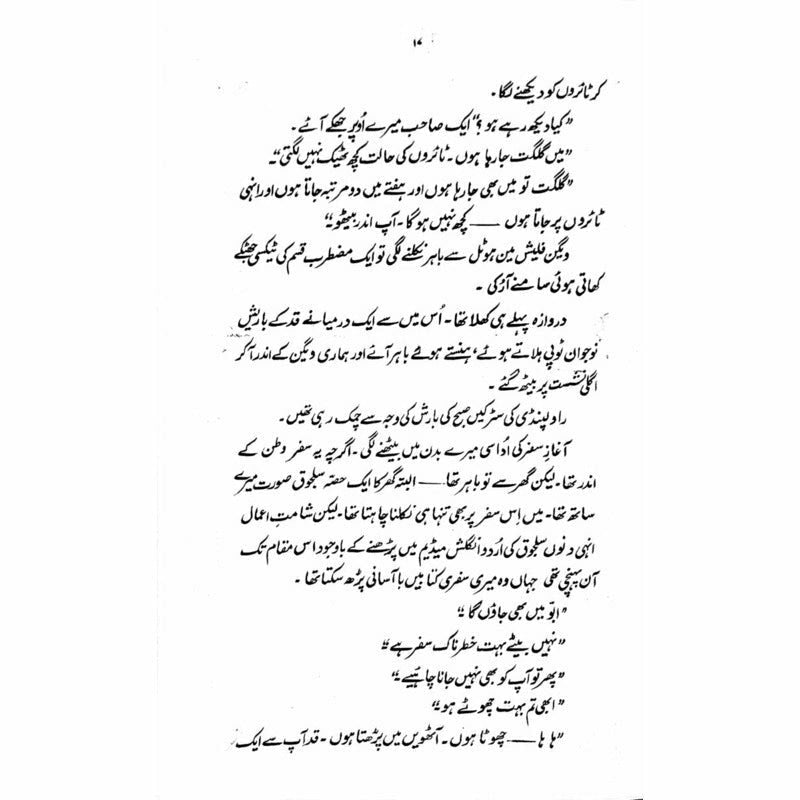 ۱۷
کر ٹائروں کو دیکھنے لگا۔
"کیا دیکھ رہے ہو؟" ایک صاحب میرے اُوپر جھکے آئے۔
"میں گلگت جا رہا ہوں۔ ٹائروں کی حالت کچھ ٹھیک نہیں لگتی"۔
"گلگت تو میں بھی جا رہا ہوں اور ہفتے میں دو مرتبہ جاتا ہوں اور انہی
ٹائروں پر جاتا ہوں —— کچھ نہیں ہو گا۔ آپ اندر بیٹھو"۔
ویگن فلیش مین ہوٹل سے باہر نکلنے لگی تو ایک مضطرب قسم کی ٹیکسی جھٹکے
کھاتی ہوئی سامنے آ رُکی۔
دروازہ پہلے ہی کھلا تھا۔ اُس میں سے ایک درمیانے قد کے باریش
نوجوان ٹوپی ہلاتے ہوئے، ہنستے ہوئے باہر آئے اور ہماری ویگن کے اندر آ کر
اگلی نشست پر بیٹھ گئے۔
راولپنڈی کی سڑکیں صبح کی بارش کی وجہ سے چمک رہی تھیں۔
آغازِ سفر کی اُداسی میرے بدن میں بیٹھنے لگی۔ اگرچہ یہ سفر وطن کے
اندر تھا۔ لیکن گھر سے تو باہر تھا —— البتہ گھر کا ایک حصّہ سلجوق صورت میرے
ساتھ تھا۔ میں اِس سفر پر بھی تنہا ہی نکلنا چاہتا تھا۔ لیکن شامتِ اعمال
انہی دنوں سلجوق کی اُردو انگلش میڈیم میں پڑھنے کے باوجود اس مقام تک
آن پہنچی تھی جہاں وہ میری سفری کتابیں بآسانی پڑھ سکتا تھا۔
"ابّو میں بھی جاؤں گا"۔
"نہیں بیٹے بہت خطرناک سفر ہے"۔
"پھر تو آپ کو بھی نہیں جانا چاہیے"۔
"ابھی تم بہت چھوٹے ہو"۔
"ہا ہا —— چھوٹا ہوں۔ آٹھویں میں پڑھتا ہوں۔ قد آپ سے ایک